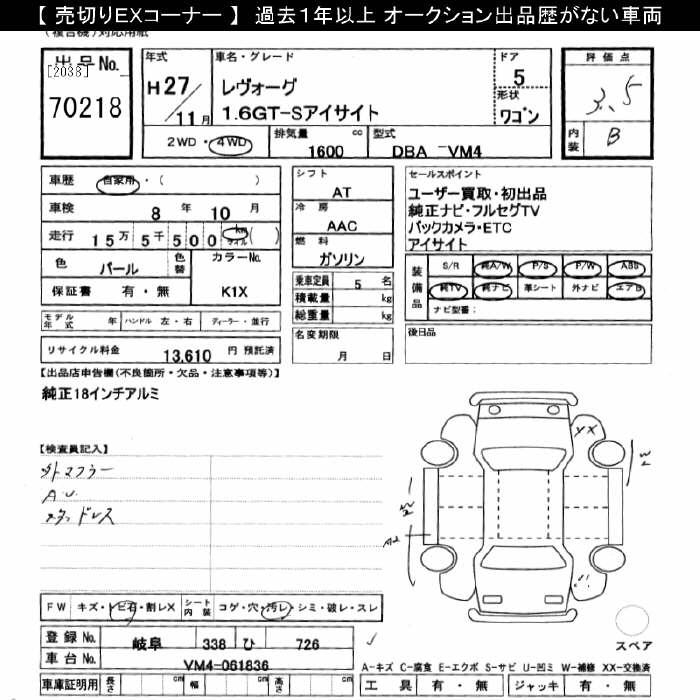 【 売切りEXコーナー 】 過去１年以上 オークション出品歴がない車両
(複合機)対応用紙
出品No. [2038] 70218
年式 H27/11月
車名・グレード
レヴォーグ
1.6GT-Sアイサイト
ドア 5
形状 ワゴン
評価点 3.5
内装 B
2WD・4WD
排気量 1600 cc
型式 DBA - VM4
車歴 自家用・( )
車検 8年 10月
走行 15万 5千 500 km マイル ( )
色 パール 色替
カラーNo. K1X
保証書 有・無
モデル年式 年 ハンドル 左・右 ディーラー・並行
リサイクル料金 13,610 円 預託済
シフト AT
冷房 AAC
燃料 ガソリン
乗車定員 5 名
積載量 kg
総重量 kg
名変期限 月 日
セールスポイント
ユーザー買取・初出品
純正ナビ・フルセグTV
バックカメラ・ETC
アイサイト
装備品 S/R 純A/W P/S P/W ABS
純TV 純ナビ 革シート 外ナビ エアB
ナビ型番:
後日品
【出品店申告欄(不良箇所・欠品・注意事項等)】
純正18インチアルミ
【検査員記入】
外マフラー
A U
メダッドレス
YX
W2
W2
A2
FW キズ・トビ石・割レX シート内装 コゲ・穴・汚レ・シミ・破レ・スレ
登録No. 岐阜 338 ひ 726
車台No. VM4-061836
車庫証明用 長さ cm 幅 cm 高さ cm
スペア
A-キズ C-腐食 E-エクボ S-サビ U-凹ミ W-補修 XX-交換済
工具 有・無 ジャッキ 有・無